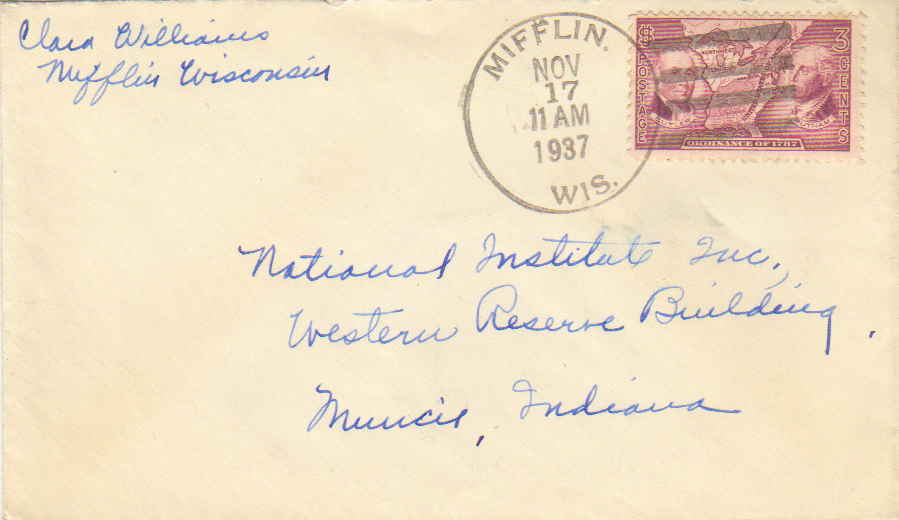 Clara Williams
Mifflin Wisconsin
MIFFLIN.
NOV
17
11 AM
1937
WIS.
POSTAGE
3 CENTS
ORDINANCE OF 1787
National Institute Inc.,
Western Reserve Building,
Muncie, Indiana